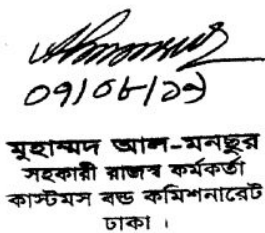 ০৭/০৮/১৯
মুহাম্মদ আল-মনছুর
সহকারী রাজস্ব কর্মকর্তা
কাস্টমস বন্ড কমিশনারেট
ঢাকা ।